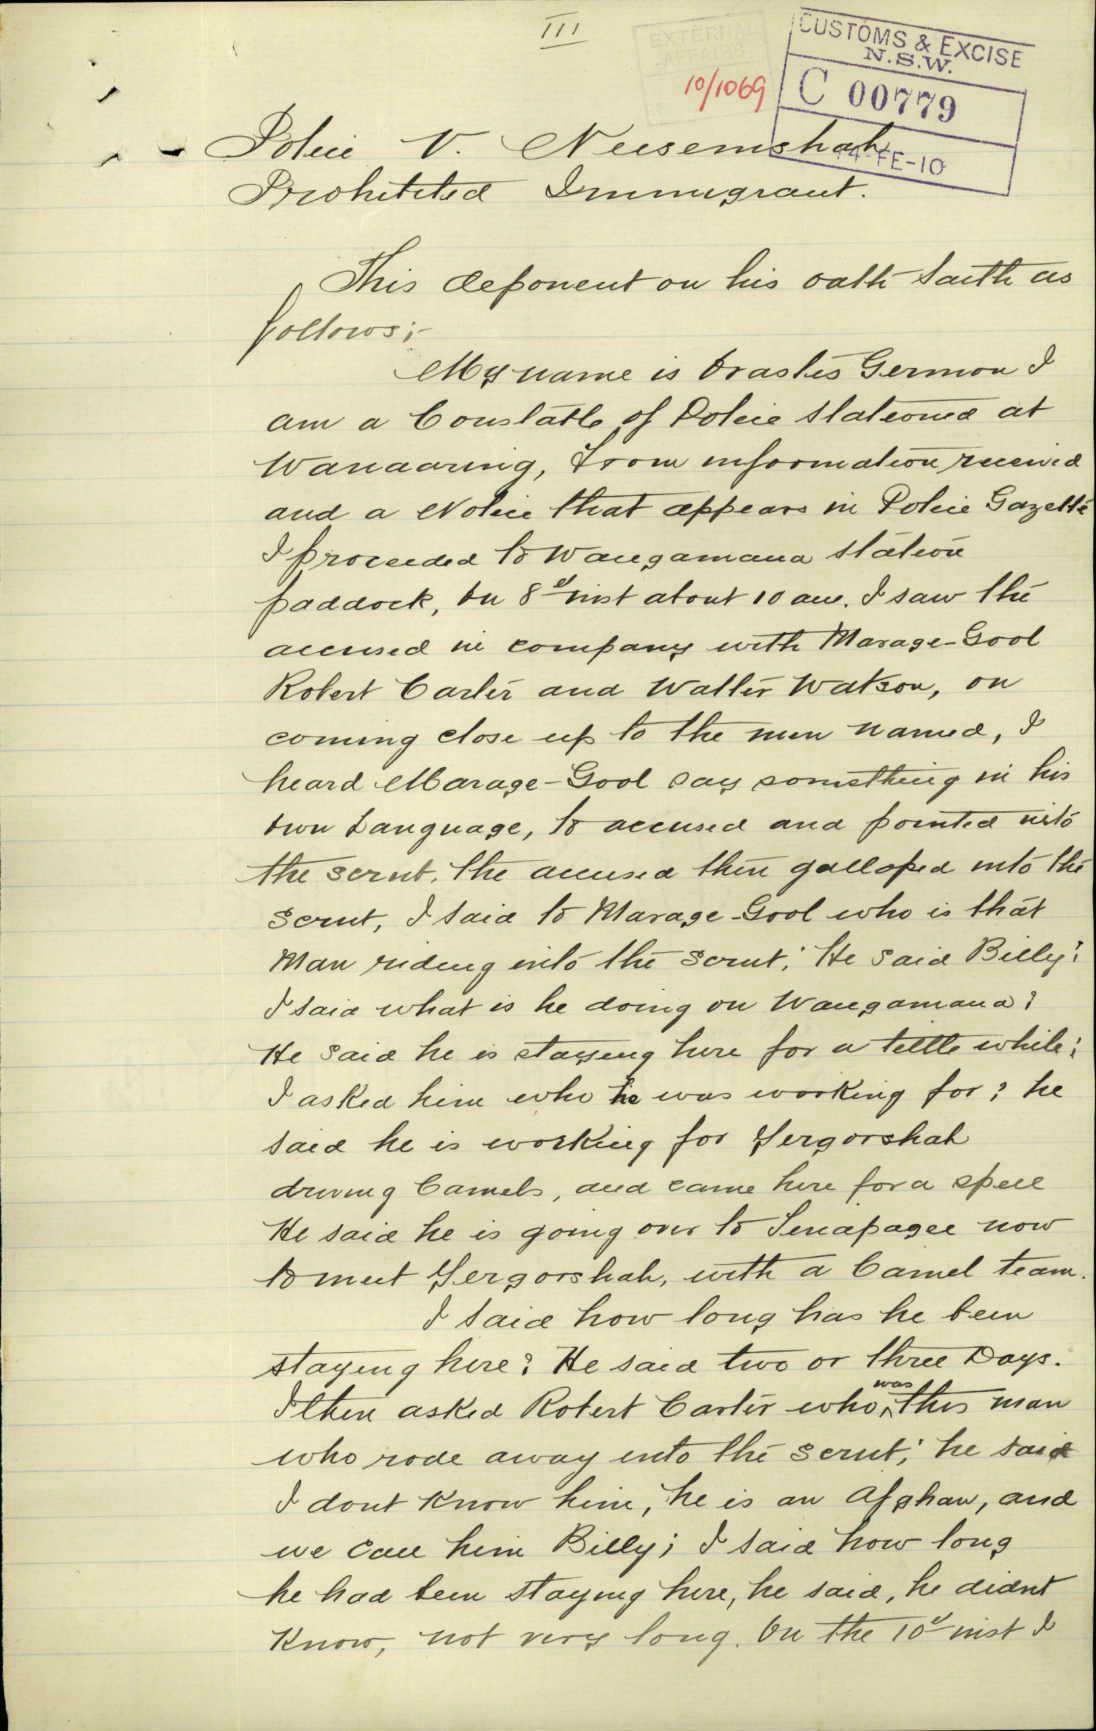 III
EXTERNAL
CUSTOMS & EXCISE
N.S.W.
C 00779
14 FE-10
10/1069
Police V. Neesemshah
Prohibited Immigrant.
This deponent on his oath saith as
follows;-
My name is Orastes Germon I
am a Constable of Police stationed at
Wanaaring, From information received
and a Notice that appears in Police Gazette
I proceeded to Wangamana station
paddock, On 8th inst about 10 am. I saw the
accused in company with Marage-Gool
Robert Carter and Walter Watson, on
coming close up to the men named, I
heard Marage-Gool say something in his
own Language, to accused and pointed into
the scrub, the accused then galloped into the
scrub, I said to Marage-Gool who is that
Man riding into the scrub; He said Billy;
I said what is he doing on Wangamana?
He said he is staying here for a little while;
I asked him who he was working for? he
said he is working for Gergorshah
driving Camels, and came here for a spell
He said he is going over to now
to meet Gergorshah, with a Camel team.
I said how long has he been
staying here? He said two or three Days.
I then asked Robert Carter who was this man
who rode away into the scrub; he said
I dont know him, he is an Afghan, and
we call him Billy; I said how long
he had been staying here, he said, he didnt
know, not very long. On the 10th inst I